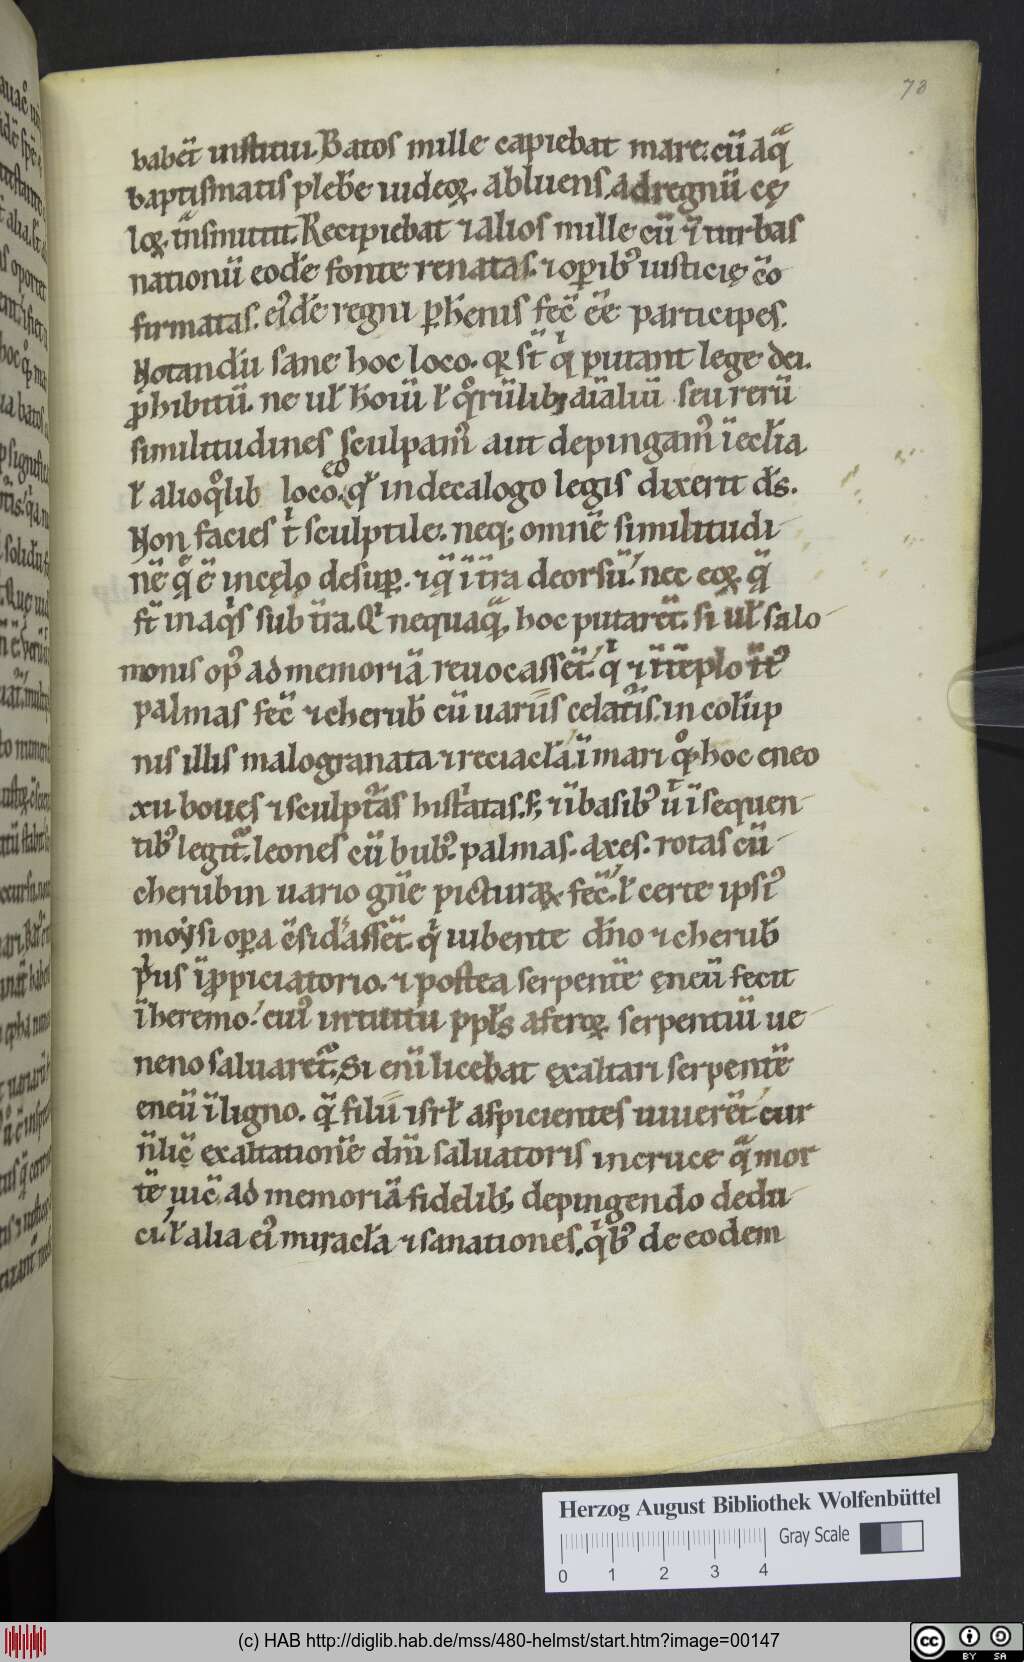 73
babet̄ institui. Batos mille capiebat mare. cū aq̄
baptismatis plebē iudeoꝝ. abluens. ad regnū cę
loꝝ. t̄nsmitit. Recipiebat ⁊ alios mille cū ⁊ turbas
nationū eodē fonte renatas. ⁊ oꝑibꝰ iusticię c̄o
firmatas. eiꝰdē regni ꝑhenis fec̄ eē participes.
Notandū sane hoc loco. qꝛ st̄ qⁱ putant lege dei.
ꝓhibitū. ne uł hoiū ł qͦrūlibꝫ aīaliū seu rerū
similitudines sculpamꝰ aut depingamꝰ ī eccła
ł alio qͦlib loco. eo qđ in decalogo legis dixerit d̄s.
Non facies tⁱ sculptile. neqꝫ omnē similitudi
nē q̄ ē in cęlo desuꝑ. ⁊ q̄ ī t̄ra deorsū. nec eoꝝ q̄
st̄ in aqⁱs sub t̄ra. Qⁱ nequaq̄ hoc putaret̄. si uł salo
monis opꝰ ad memoriā reuocasset̄. qⁱ ⁊ ī tēplo
palmas fec̄ ⁊ cherub̄ cū uariis celatᵃis. in colūp
nis illis malogranata ⁊ reciacła. ī mari qͦꝗ hoc eneo
xii boues ⁊ sculptᵃas histⁱatas. sꝫ ⁊ ī basibꝰ ū ī sequen
tibꝰ legit̄. leones cū bubꝰ. palmas. axes. rotas cū
cherubin uario gn̄e picturaꝝ fec̄. ł certe ipsiꝰ
moysi oꝑa cōsid̄asset̄. qⁱ iubente dn̄o ⁊ cherub̄
pⁱus ī ꝓpiciatorio. ⁊ postea serpentē ęneū fecit
ī heremo. cuiꝰ intuitu ppłs a feroꝝ serpentiū ue
neno saluaret̄. Si enī licebat exaltari serpentē
eneū ī ligno. q̄ filii isrł aspicientes uiueret̄ cur
n̄ lic̄ exaltationē dn̄i saluatoris in cruce q̄ mor
tē uic̄ ad memoriā fidelibꝫ depingendo dedu
ci. ł alia eiꝰ miracła ⁊ sanationes. qⁱbꝰ de eodem
Herzog August Bibliothek Wolfenbüttel
Gray Scale
0 1 2 3 4
(c) HAB http://diglib.hab.de/mss/480-helmst/start.htm?image=00147
cc BY SA